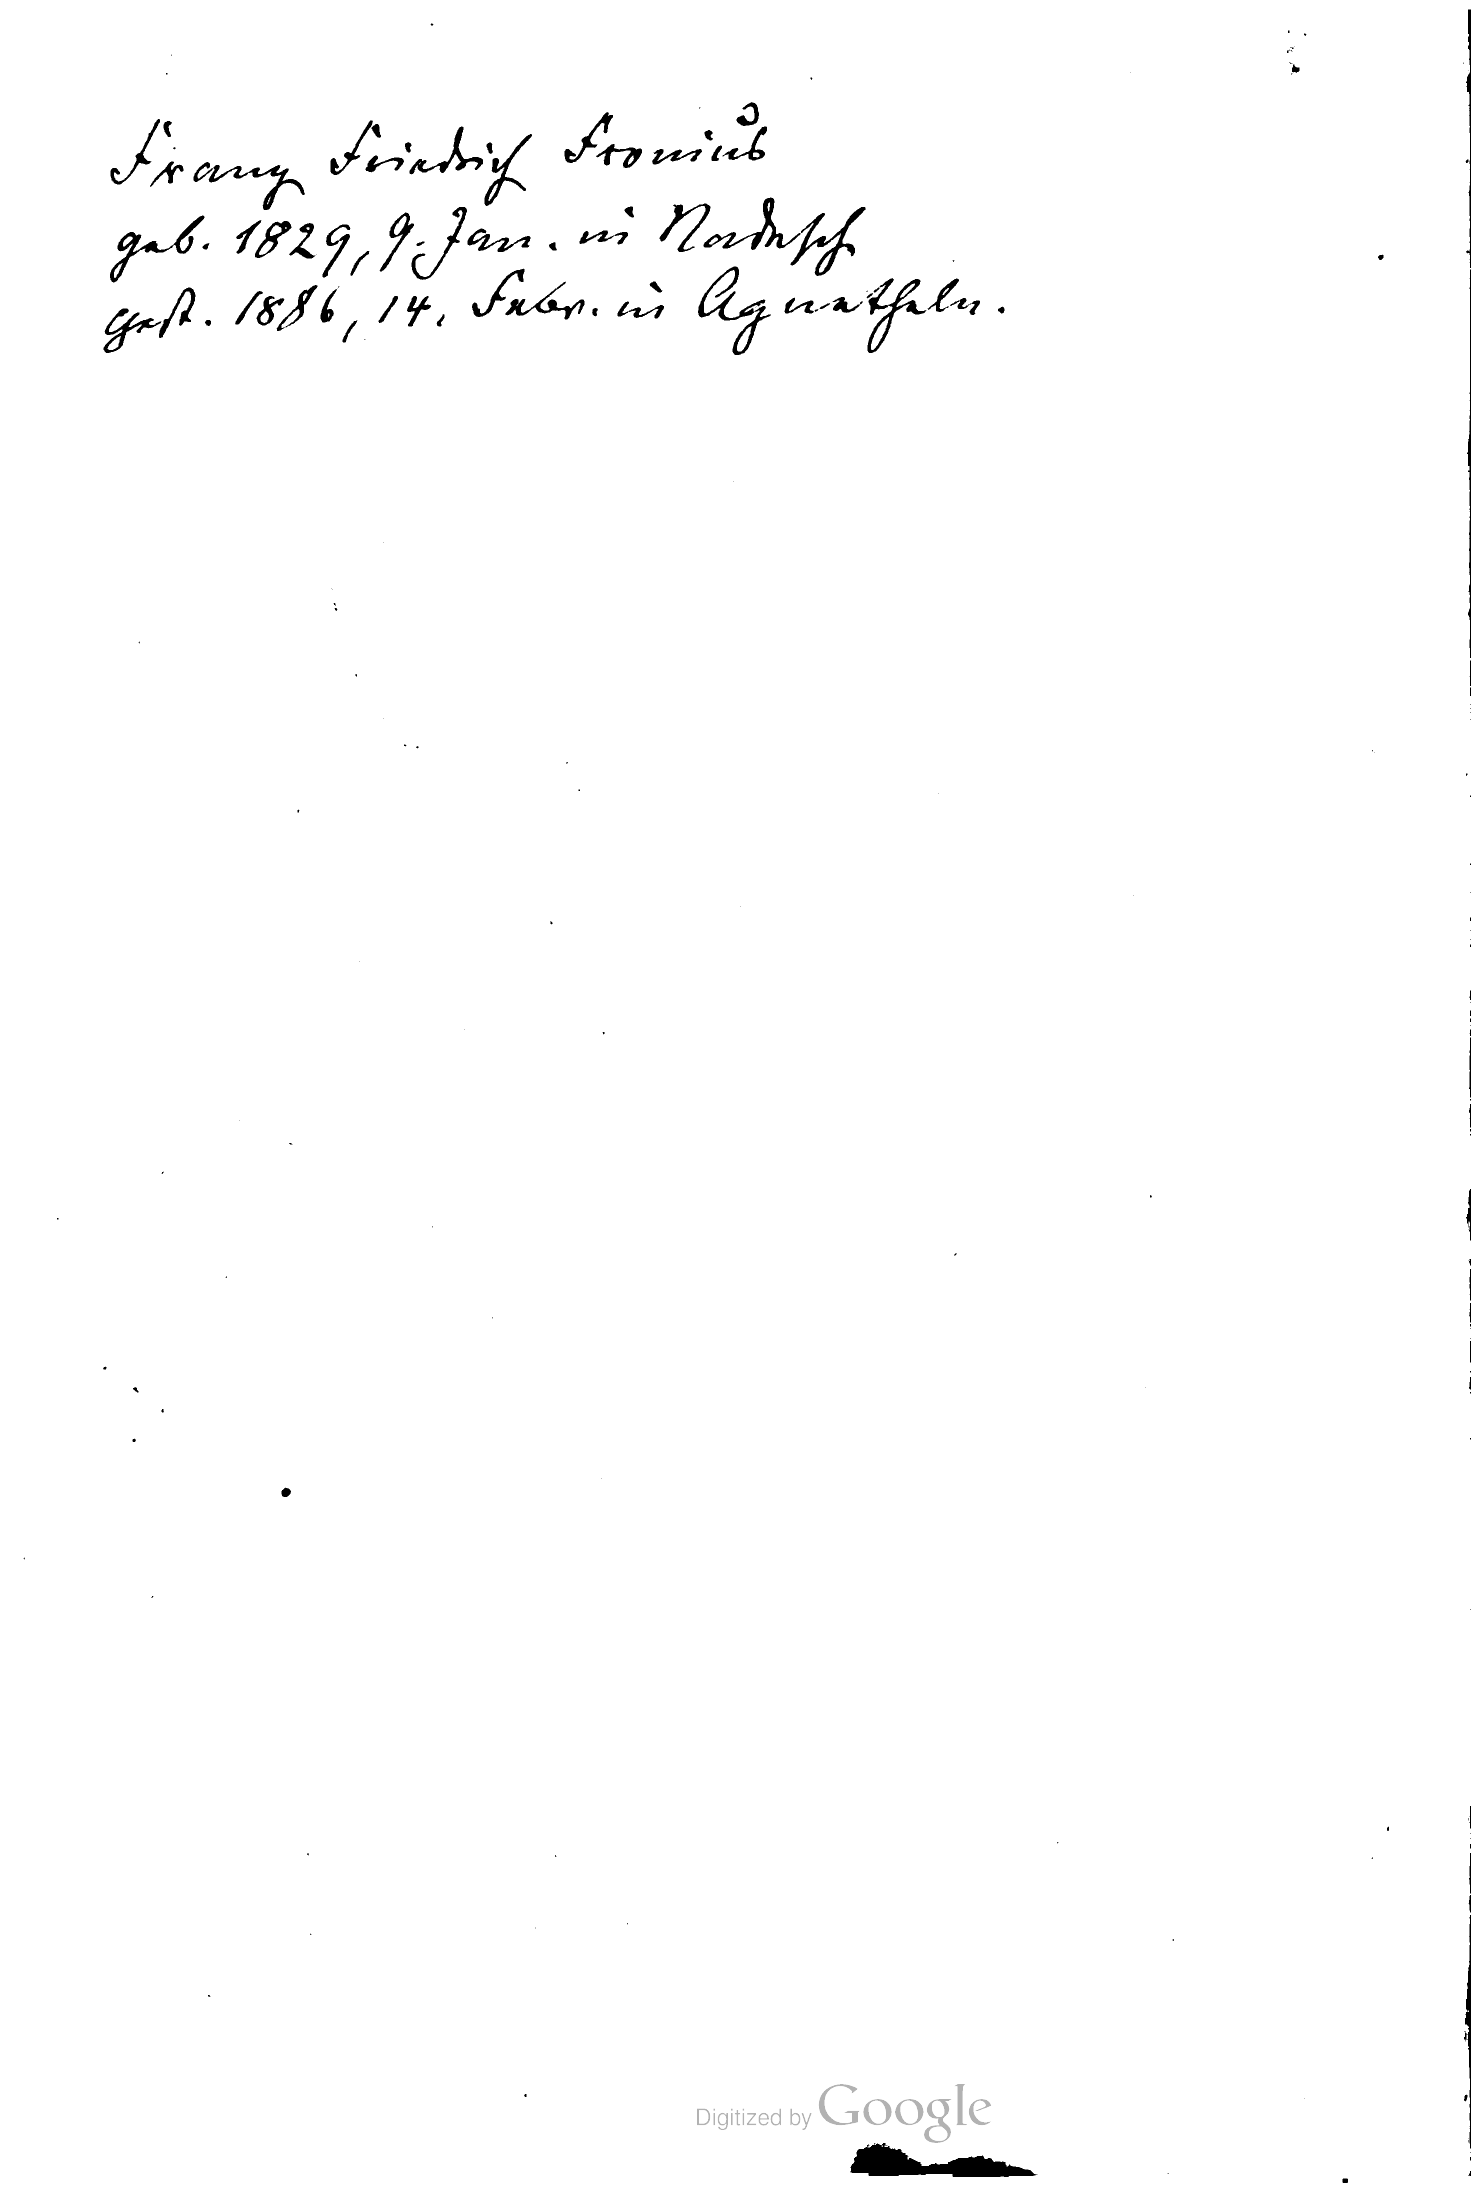 Franz Friedrich Fronius
geb. 1829, 9. Jan. in Nadesch
gest. 1886, 14. Febr. in Agnetheln.
Digitized by Google